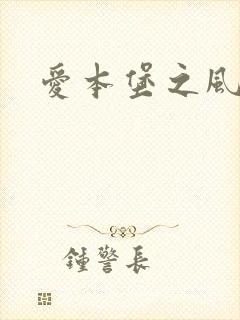 愛本堡之風
鍾警長